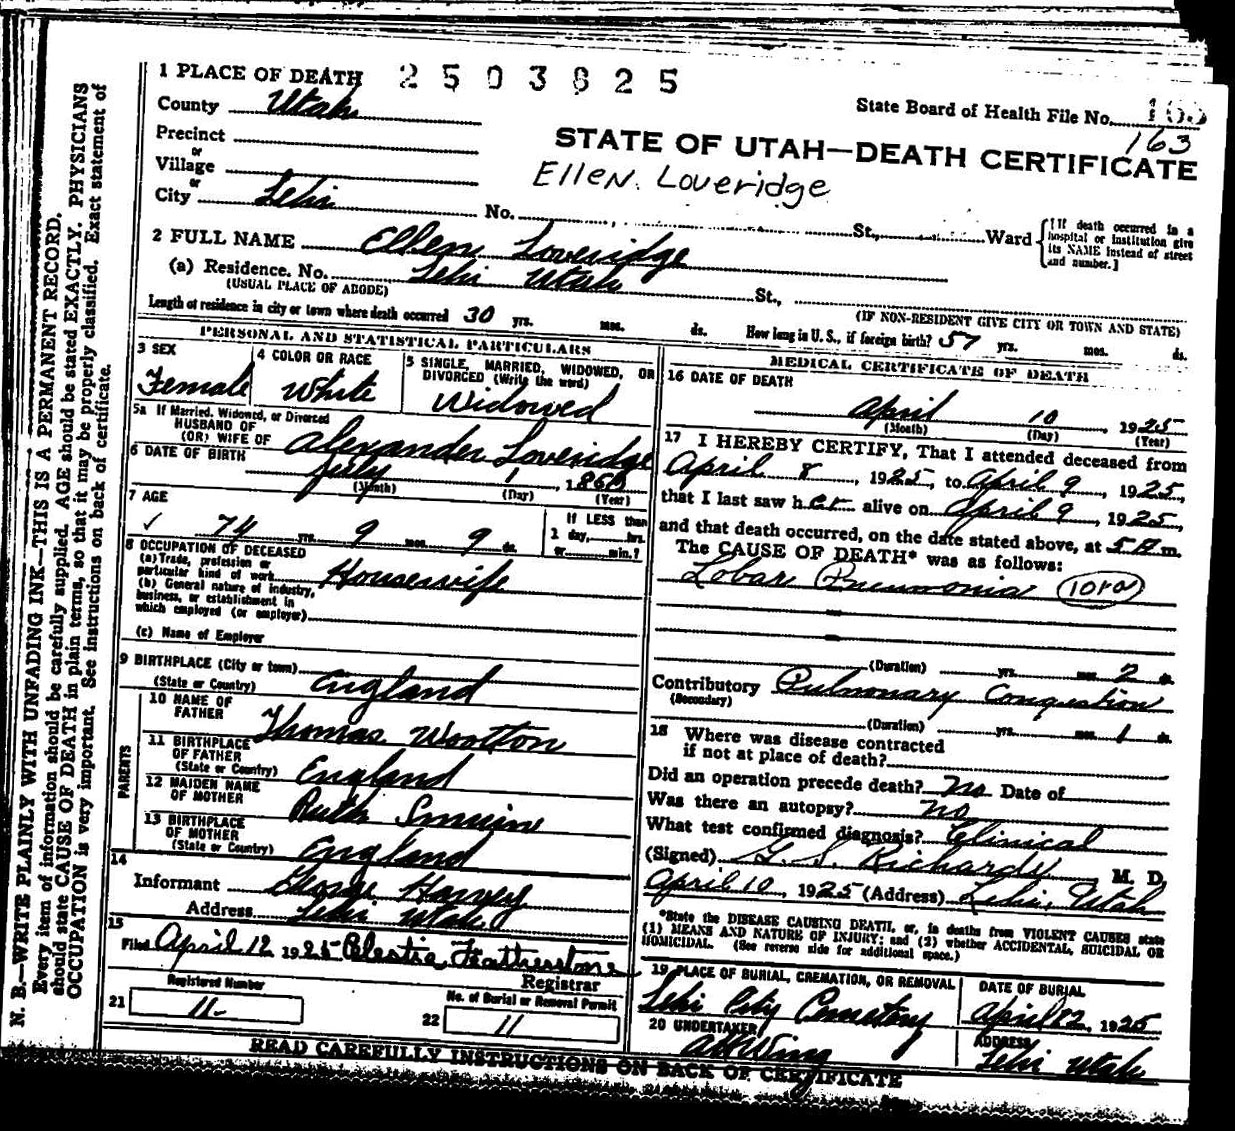 1 PLACE OF DEATH 2503825
State Board of Health File No. 163
County Utah
163
Precinct
STATE OF UTAH—DEATH CERTIFICATE
or
Village
Ellen Loveridge
or
City Lehi No. St., Ward
[If death occurred in a hospital or institution give its NAME instead of street and number.]
2 FULL NAME Ellen Loveridge
(a) Residence. No. Lehi Utah St.,
(USUAL PLACE OF ABODE)
(IF NON-RESIDENT GIVE CITY OR TOWN AND STATE)
Length of residence in city or town where death occurred 30 yrs. mos. ds. How long in U. S., if foreign birth? 57 yrs. mos. ds.
PERSONAL AND STATISTICAL PARTICULARS
3 SEX
Female
4 COLOR OR RACE
White
5 SINGLE, MARRIED, WIDOWED, OR
DIVORCED (Write the word)
Widowed
5a If Married, Widowed, or Divorced
HUSBAND OF
(OR) WIFE OF Alexander Loveridge
6 DATE OF BIRTH July 1, 1850
(Month) (Day) (Year)
7 AGE
✓ 74 yrs. 9 mos. 9 ds.
If LESS than
1 day, hrs.
or min.?
8 OCCUPATION OF DECEASED
(a) Trade, profession or
particular kind of work Housewife
(b) General nature of industry,
business, or establishment in
which employed (or employer)
(c) Name of Employer
9 BIRTHPLACE (City or town)
(State or Country) England
PARENTS
10 NAME OF
FATHER Thomas Wootton
11 BIRTHPLACE
OF FATHER
(State or Country) England
12 MAIDEN NAME
OF MOTHER Ruth
13 BIRTHPLACE
OF MOTHER
(State or Country) England
14
Informant George Harvey
Address Lehi Utah
15
Filed April 12 1925 Celestia Featherstone
Registrar
Registered Number
21 11
No. of Burial or Removal Permit
22 11
MEDICAL CERTIFICATE OF DEATH
16 DATE OF DEATH
April 10, 1925
(Month) (Day) (Year)
17 I HEREBY CERTIFY, That I attended deceased from
April 8, 1925, to April 9, 1925,
that I last saw her alive on April 9, 1925,
and that death occurred, on the date stated above, at 5 A m.
The CAUSE OF DEATH* was as follows:
Lobar Pneumonia
(Duration) yrs. mos. 2 ds.
Contributory Pulmonary Congestion
(Secondary)
(Duration) yrs. mos. 1 ds.
18 Where was disease contracted
if not at place of death?
Did an operation precede death? no Date of
Was there an autopsy? no
What test confirmed diagnosis? Clinical
(Signed) G. S. Richards M. D.
April 10, 1925 (Address) Lehi, Utah
*State the DISEASE CAUSING DEATH, or, in deaths from VIOLENT CAUSES state
(1) MEANS AND NATURE OF INJURY; and (2) whether ACCIDENTAL, SUICIDAL OR
HOMICIDAL. (See reverse side for additional space.)
19 PLACE OF BURIAL, CREMATION, OR REMOVAL
Lehi City Cemetery
DATE OF BURIAL
April 12, 1925
20 UNDERTAKER
A H Wing
ADDRESS
Lehi Utah
READ CAREFULLY INSTRUCTIONS ON BACK OF CERTIFICATE
N. B.—WRITE PLAINLY WITH UNFADING INK—THIS IS A PERMANENT RECORD.
Every item of information should be carefully supplied. AGE should be stated EXACTLY. PHYSICIANS
should state CAUSE OF DEATH in plain terms, so that it may be properly classified. Exact statement of
OCCUPATION is very important. See instructions on back of certificate.